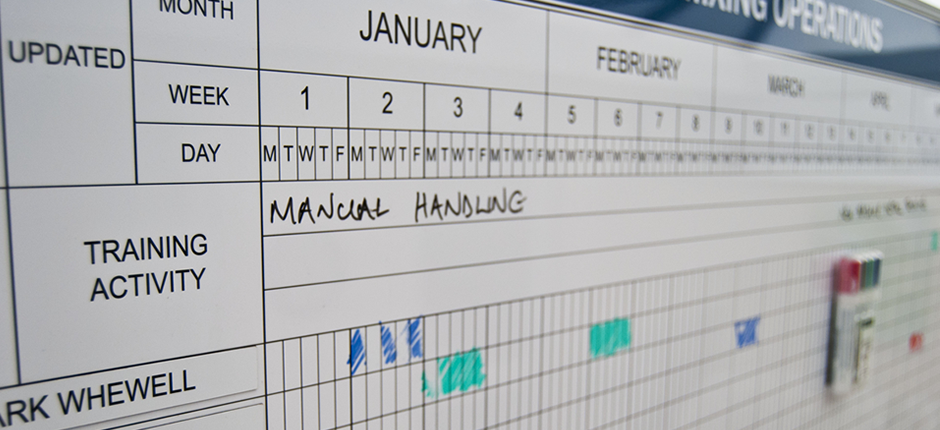 MIXING OPERATIONS
UPDATED
MONTH
JANUARY
FEBRUARY
MARCH
APRIL
WEEK
1 2 3 4 5 6 7 8 9 10 11 12 13
DAY
M T W T F M T W T F M T W T F M T W T F M T W T F M T W T F
MANUAL HANDLING
TRAINING
ACTIVITY
ARK WHEWELL